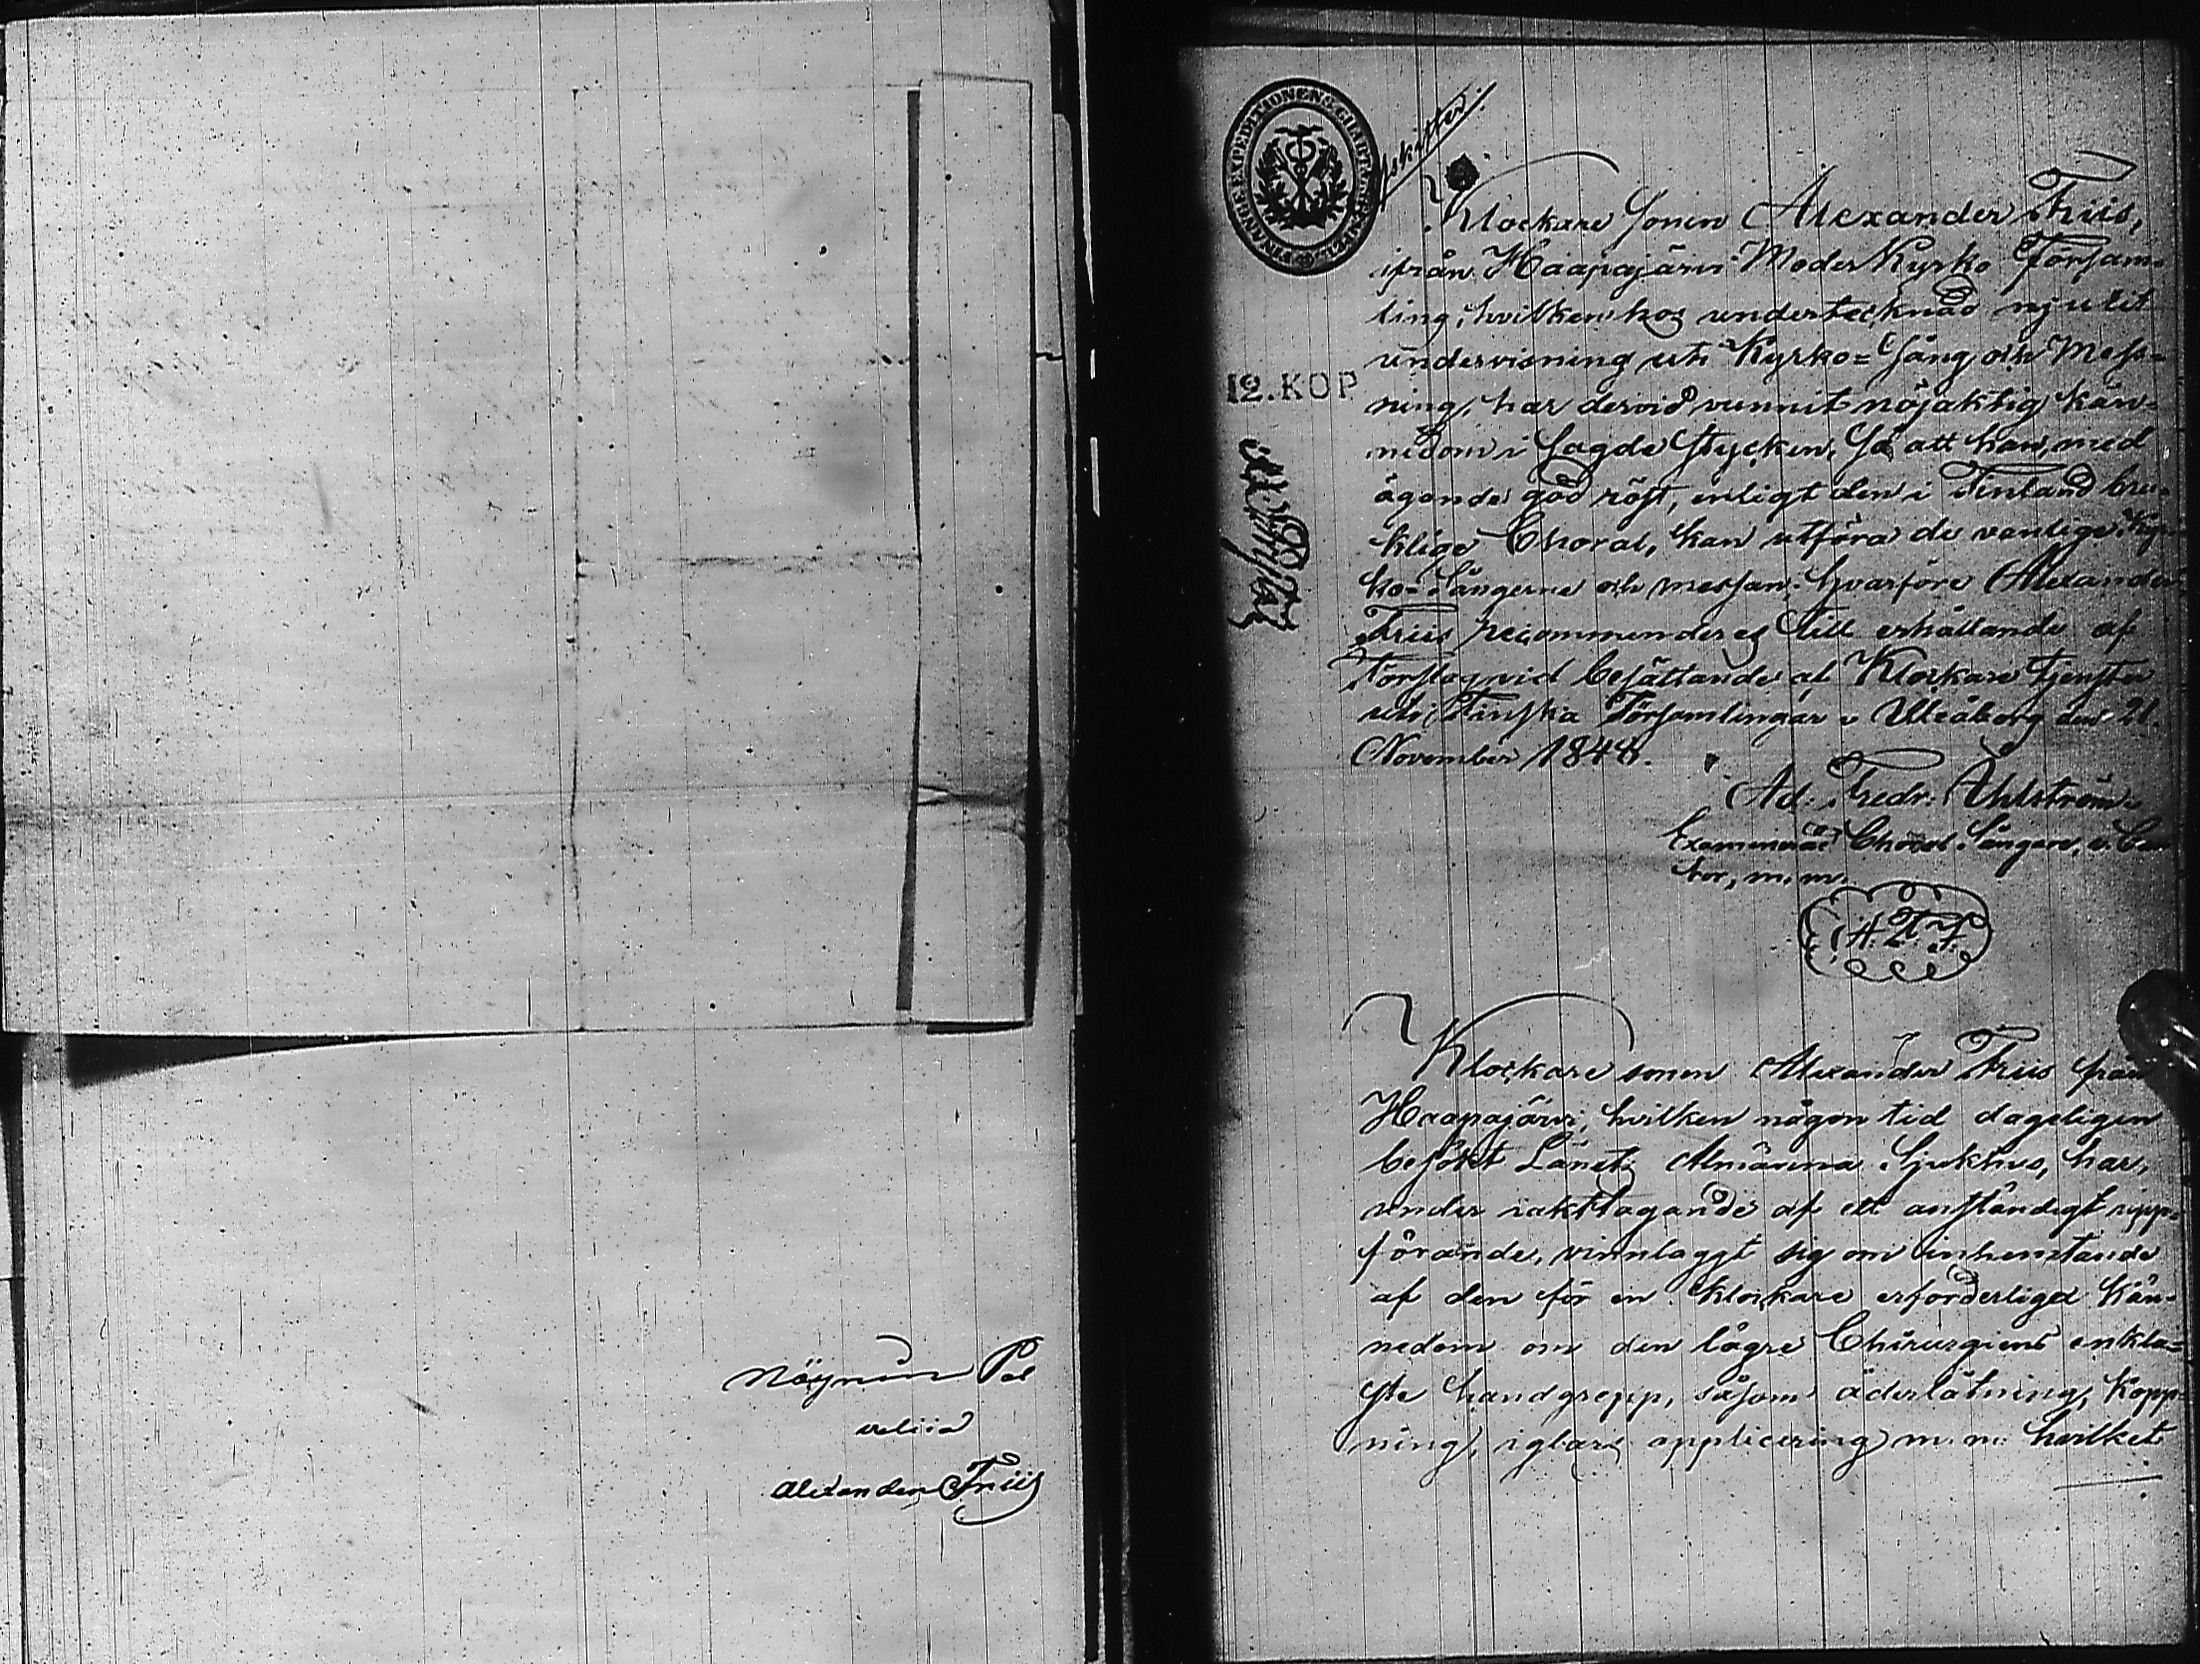 nöyrin Pal
velia
Alexander Friis
Afskrifter.
FINANCE EXPEDITIONENS
12. KOP
Klockare Sonen Alexander Friis,
ifrån Haapajärvi Moder Kyrko Försam-
ling, hvilken hos undertecknad njutit
undervisning uti Kyrko=Sång och Mess=
ning, har dervid vunnit nöjaktig kän=
nedom i Sagde Stycken, Så att han, med
ägande god röst, enligt den i Finland bru-
klige Choral, kan utföra de vanlige Kyr-
ko-Sångerne och messan; hvarföre Alexander
Friis recommenderes till erhållande af
Förslag vid besättande af Klockare tjenster
uti Finska Församlingar. Uleåborg den 21.
November 1848.
Ad. Fredr. Uhlström.
Examinerad Choral Sångare, v. Can
tor, m. m.
Klockare sonen Alexander Friis från
Haapajärvi, hvilken någon tid dageligen
besökt Länets Almänna Sjukhus, har,
under iakttagande af ett anständigt upp=
förande, vinnlaggt sig om inhemtande
af den för en klockare erforderliga Kän=
nedom om den lägre Chirurgiens enkla=
ste handgrepp, såsom åderlåtning, Kopp=
ning, iglars applicering m. m. hvilket